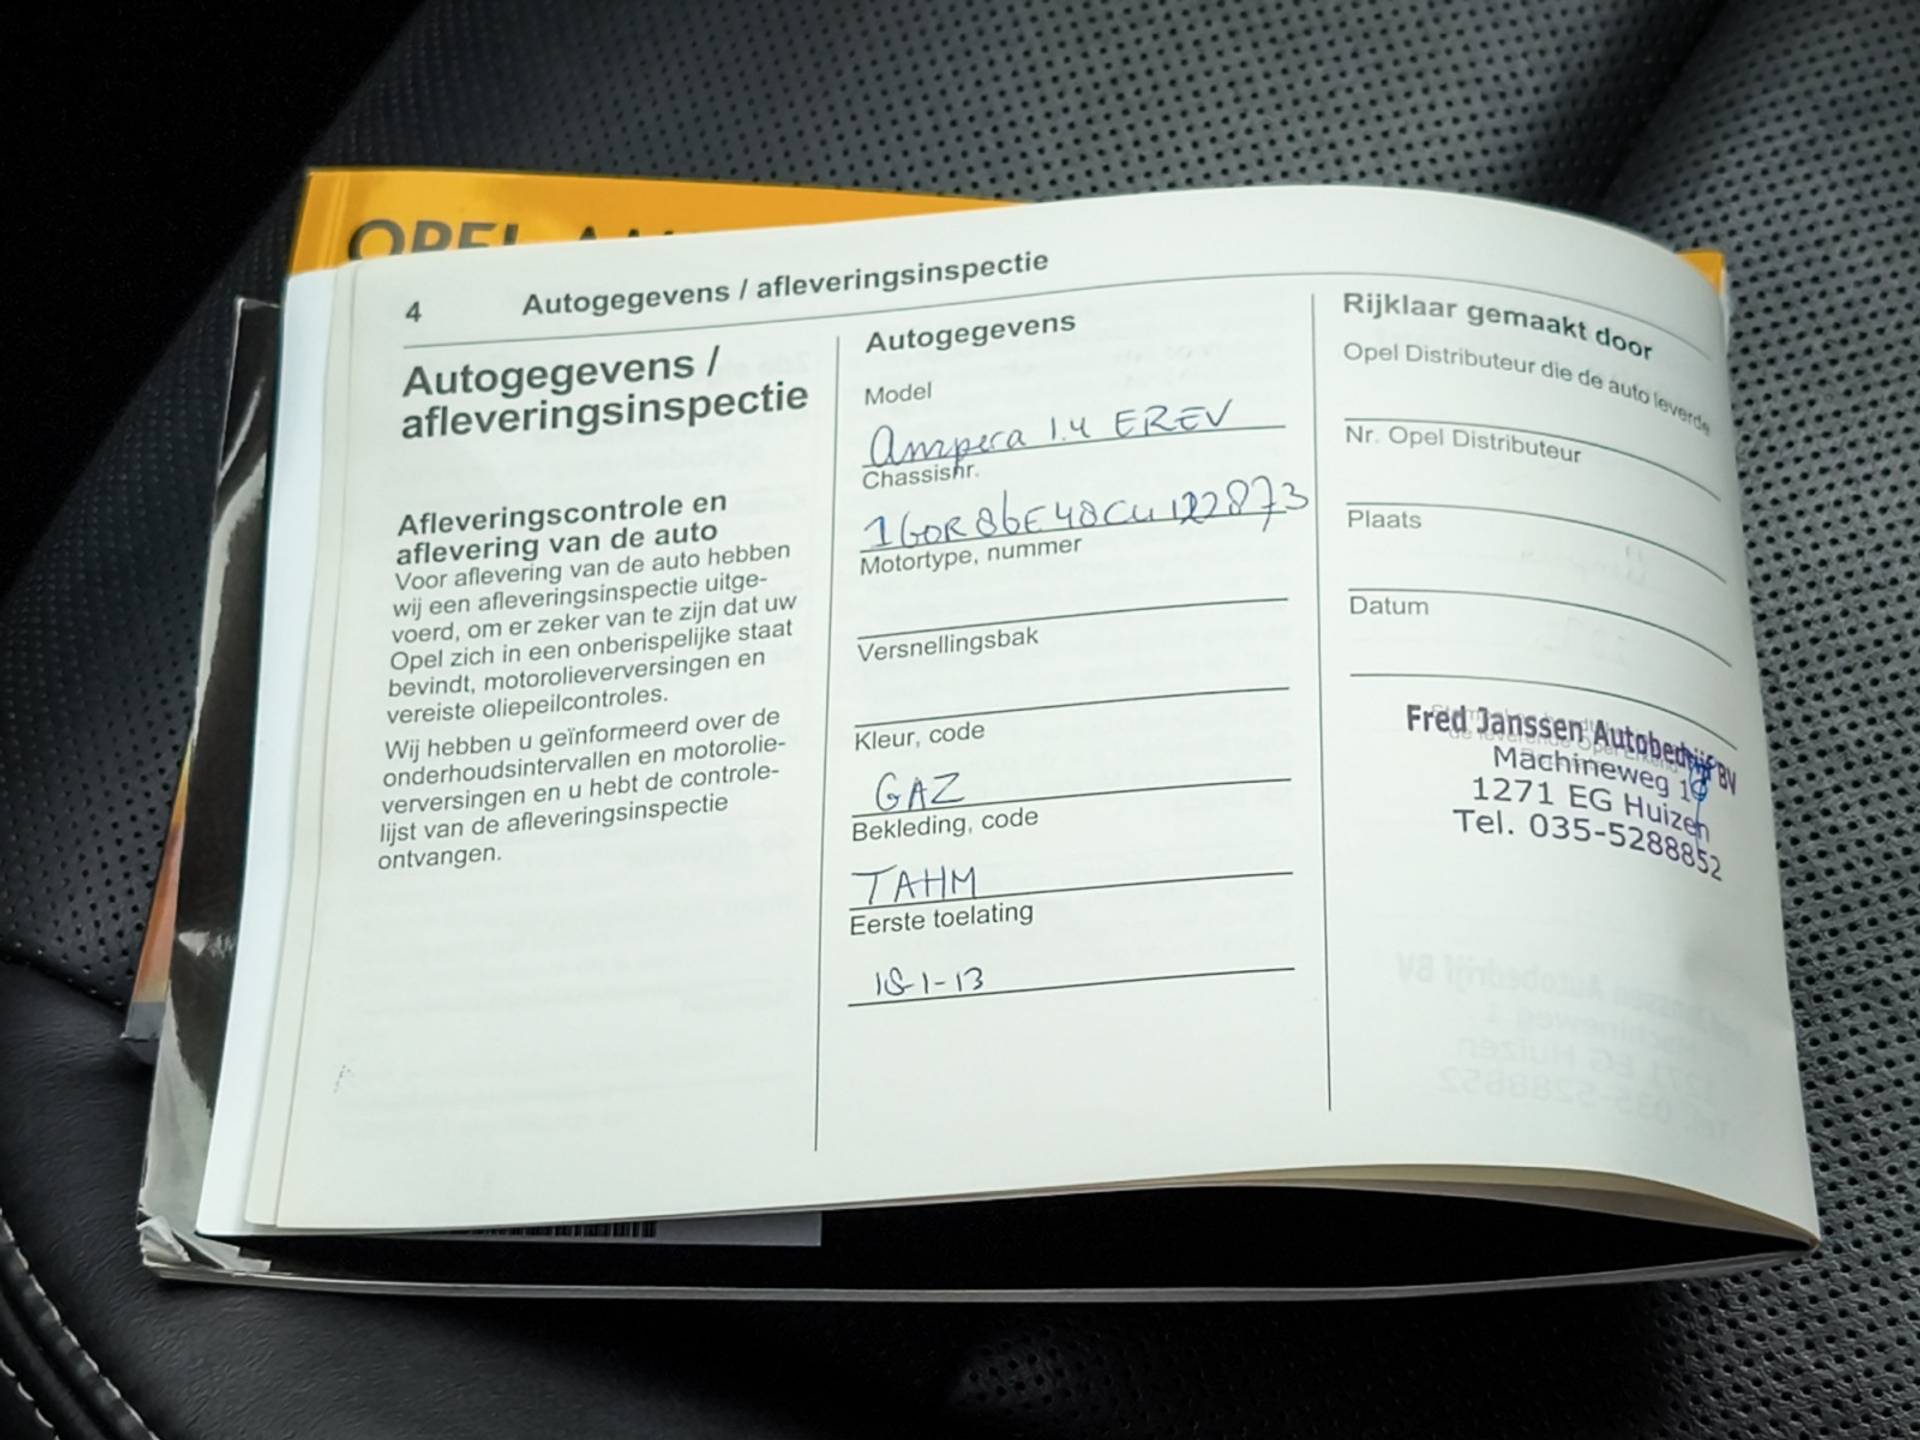 OPEL
4 Autogegevens / afleveringsinspectie
Autogegevens /
afleveringsinspectie
Afleveringscontrole en
aflevering van de auto
Voor aflevering van de auto hebben
wij een afleveringsinspectie uitge-
voerd, om er zeker van te zijn dat uw
Opel zich in een onberispelijke staat
bevindt, motorolieverversingen en
vereiste oliepeilcontroles.
Wij hebben u geïnformeerd over de
onderhoudsintervallen en motorolie-
verversingen en u hebt de controle-
lijst van de afleveringsinspectie
ontvangen.
Autogegevens
Model
Ampera 1.4 EREV
Chassisnr.
1G0R86E48CU122873
Motortype, nummer
Versnellingsbak
Kleur, code
GAZ
Bekleding, code
TAHM
Eerste toelating
18-1-13
Rijklaar gemaakt door
Opel Distributeur die de auto leverde
Nr. Opel Distributeur
Plaats
Datum
Fred Janssen Autobedrijf BV
Machineweg 1
1271 EG Huizen
Tel. 035-5288852